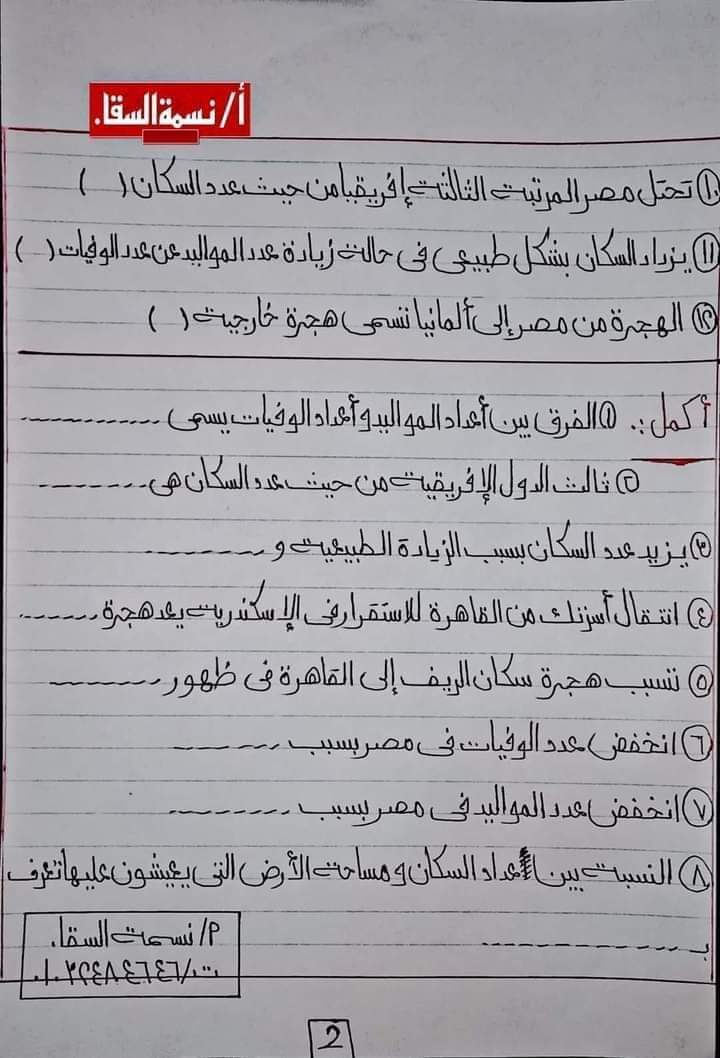 أ/ نسمة السقا.
١٠ تحتل مصر المرتبة الثالثة إفريقيا من حيث عدد السكان ( )
١١ يزداد السكان بشكل طبيعى فى حالة زيادة عدد المواليد عن عدد الوفيات ( )
١٢ الهجرة من مصر إلى ألمانيا تسمى هجرة خارجية ( )
أكمل :. ١ الفرق بين أعداد المواليد وأعداد الوفيات يسمى ............
٢ ثالث الدول الإفريقية من حيث عدد السكان هى ........
٣ يزيد عدد السكان بسبب الزيادة الطبيعية و ........
٤ انتقال أسرتك من القاهرة للاستقرار فى الإسكندرية يعد هجرة ......
٥ تسبب هجرة سكان الريف إلى القاهرة فى ظهور ........
٦ انخفض عدد الوفيات فى مصر بسبب ........
٧ انخفض عدد المواليد فى مصر بسبب ........
٨ النسبة بين أعداد السكان ومساحة الأرض التى يعيشون عليها تعرف
بـ ............
م/ نسمة السقا.
2